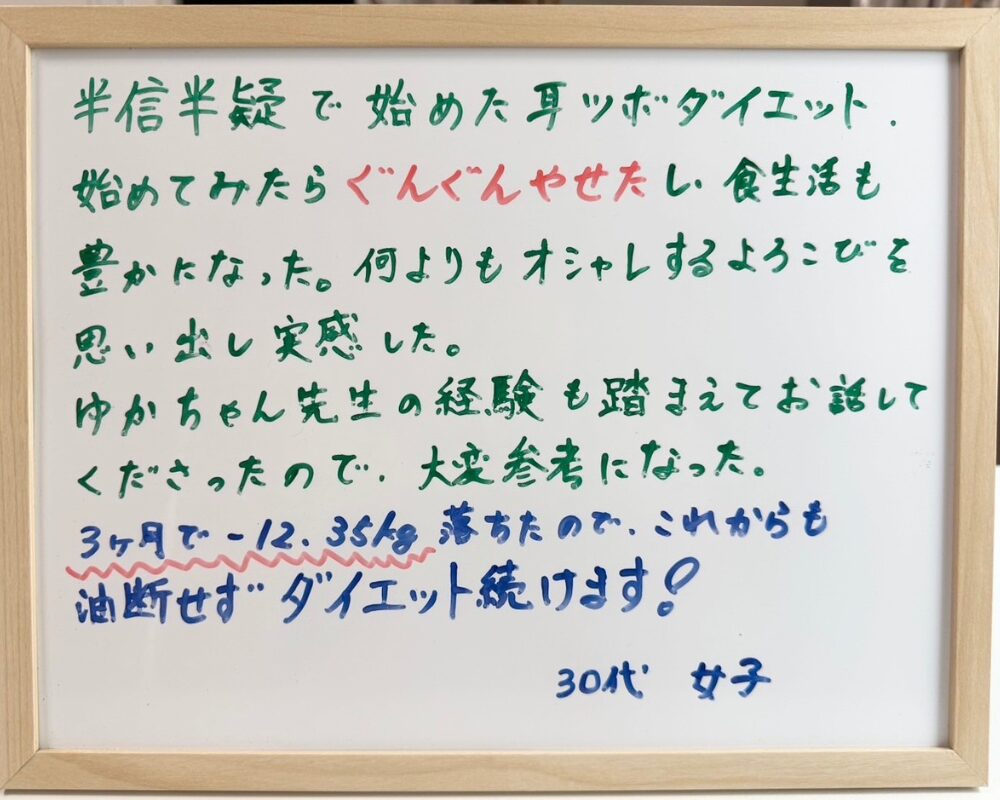 半信半疑で始めた耳ツボダイエット.
始めてみたらぐんぐんやせたし、食生活も
豊かになった。何よりもオシャレするよろこびを
思い出し実感した。
ゆかちゃん先生の経験も踏まえてお話して
くださったので、大変参考になった。
3ヶ月で-12.35kg落ちたので、これからも
油断せずダイエット続けます!
30代 女子